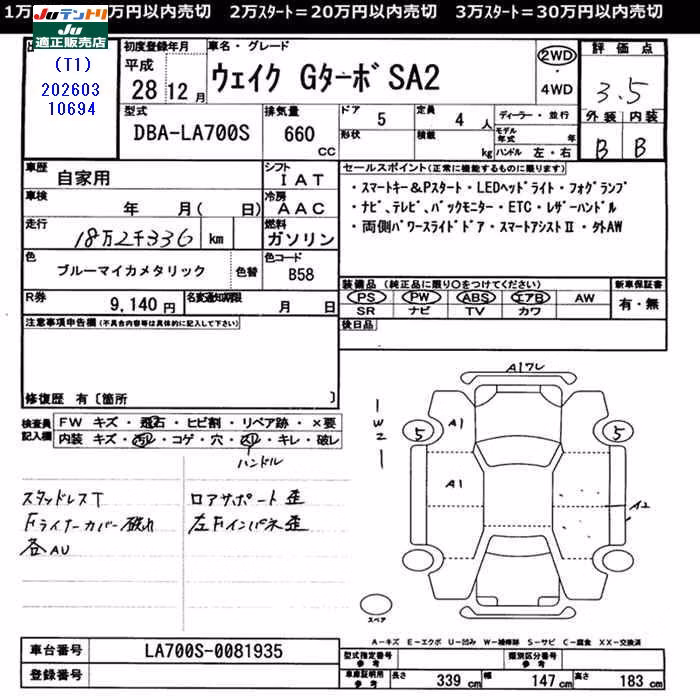 1万 万円以内売切 2万スタート=20万円以内売切 3万スタート=30万円以内売切
JUテントリ
JU
適正販売店
(T1)
202603
10694
初度登録年月
平成
28 12月
車名・グレード
ウェイク Gターボ SA2
2WD
・
4WD
評価点
3.5
外装 内装
B B
型式
DBA-LA700S
排気量
660
CC
ドア 5
形状
定員 4 人
積載 kg
ディーラー・並行
モデル年式 年
ハンドル 左・右
車歴
自家用
シフト
IAT
車検
年 月( 日)
冷房
AAC
走行
18万2千336 km
燃料
ガソリン
色
ブルーマイカメタリック
色替
色コード
B58
R券
9,140 円
名変通知期限
月 日
セールスポイント(正常に機能するものに限ります)
・スマートキー&Pスタート・LEDヘッドライト・フォグランプ
・ナビ、テレビ、バックモニター・ETC・レザーハンドル
・両側パワースライドドア・スマートアシストⅡ・外AW
装備品(純正品に限り○をつけてください)
PS PW ABS エアB AW
SR ナビ TV カワ
新車保証書
有・無
後日品
注意事項申告欄(不具合内容等は具体的に記入して下さい)
修復歴 有〔箇所 〕
検査員
記入欄
FW キズ・飛石・ヒビ割・リペア跡・×要
内装 キズ・汚レ・コゲ・穴・スレ・キレ・破レ
ハンドル
スタッドレスT
Fライナーカバー破れ
各AU
ロアサポート歪
左Fインパネ歪
A17レ
W2
5
5
A1
A1
A2
スペア
A－キズ E－エクボ U－凹み W－補修跡 S－サビ C－腐食 XX－交換済
車台番号
LA700S-0081935
登録番号
型式指定番号
参考
類別区分番号
参考
車庫証明用
参考
長さ 339 cm 幅 147 cm 高さ 183 cm